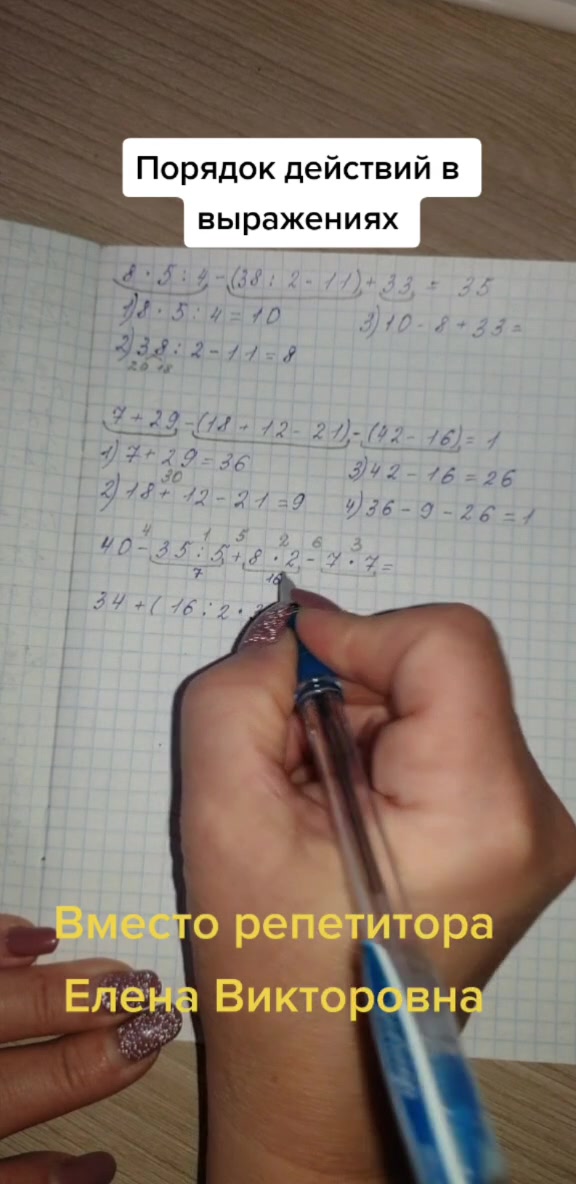 Порядок действий в
выражениях
8 · 5 : 4 - (38 : 2 - 11) + 33 = 35
1) 8 · 5 : 4 = 10
3) 10 - 8 + 33 =
2) 38 : 2 - 11 = 8
20 18
7 + 29 - (18 + 12 - 21) - (42 - 16) = 1
1) 7 + 29 = 36
3) 42 - 16 = 26
30
2) 18 + 12 - 21 = 9
4) 36 - 9 - 26 = 1
4 1 5 2 6 3
40 - 35 : 5 + 8 · 2 - 7 · 7 =
7 16
34 + ( 16 : 2 ·
Вместо репетитора
Елена Викторовна